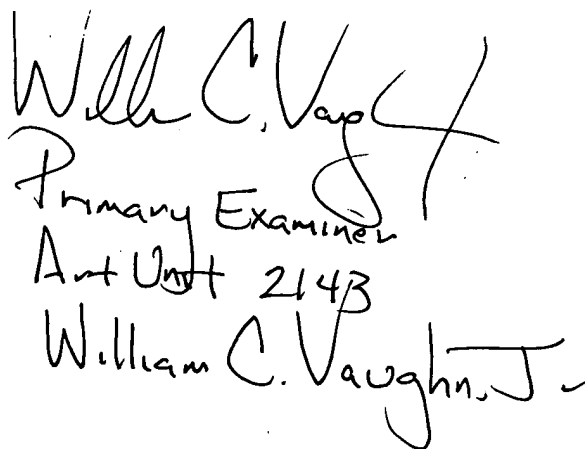 Will C. Vaugh
Primary Examiner
Art Unit 2143
William C. Vaughn, Jr.